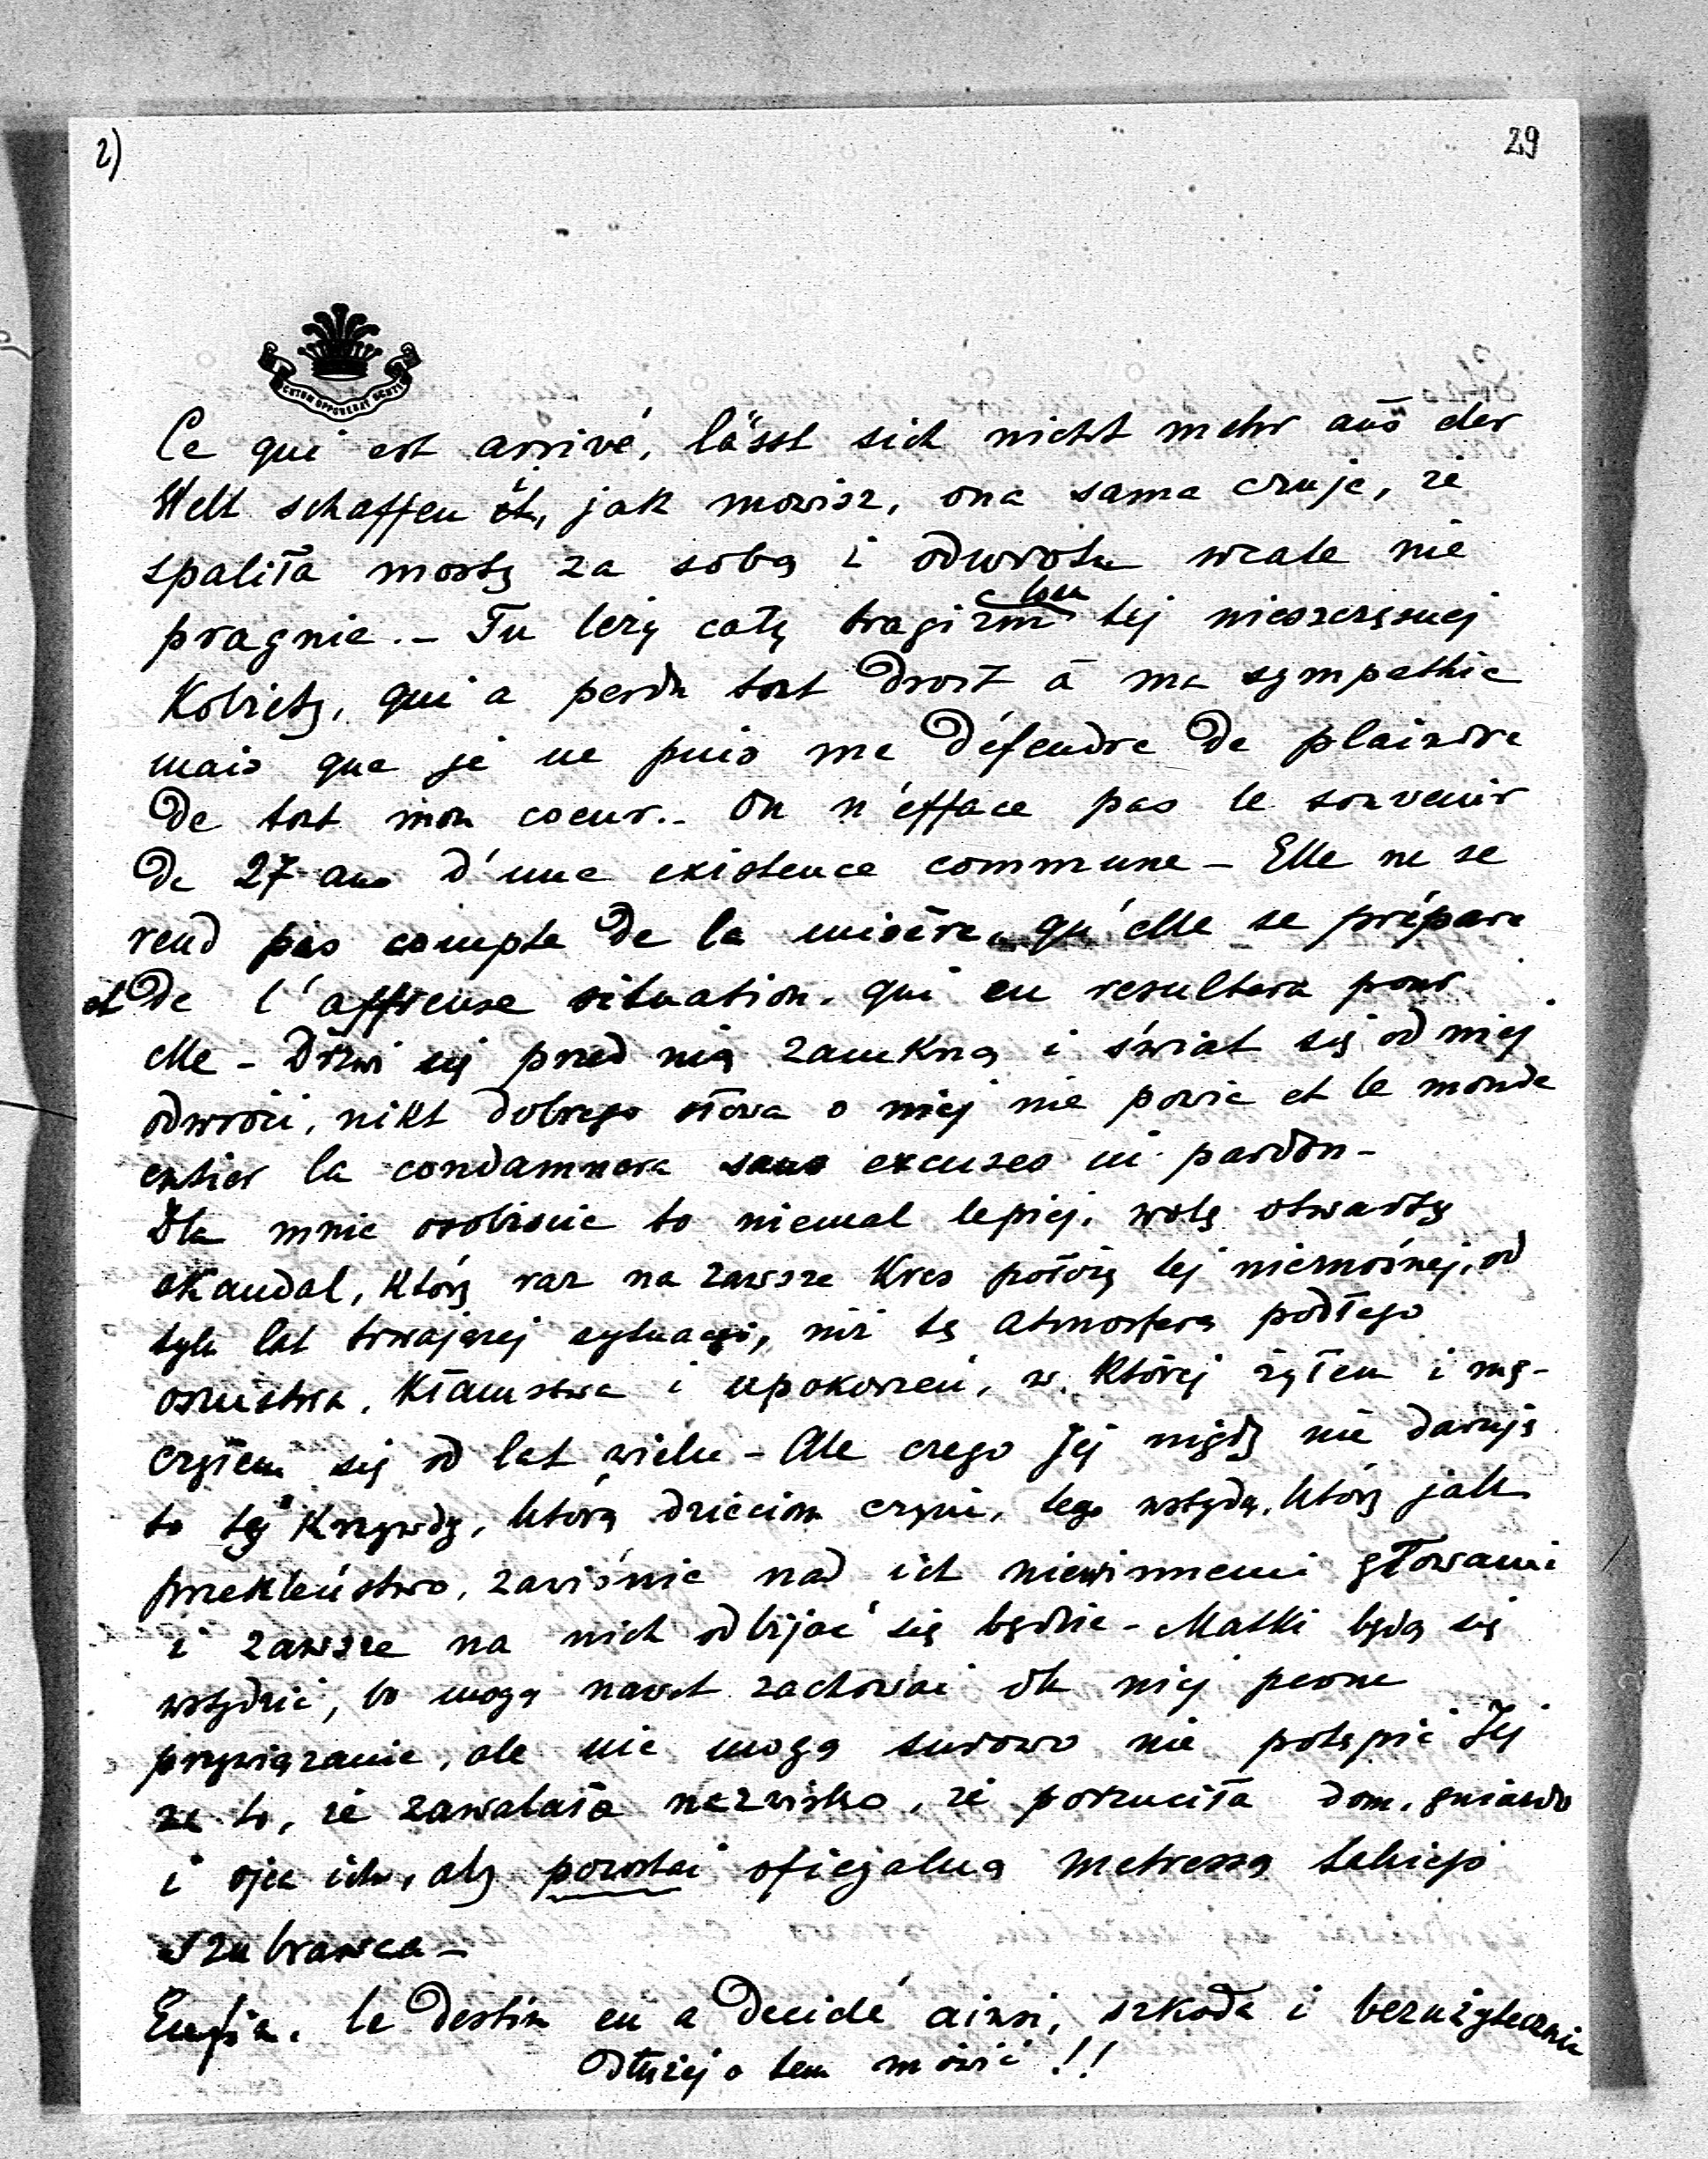 2)
29
SCUTUM OPPONEBAT SCUTIS
Ce qui est arrivé, lässt sich nicht mehr aus der
Welt schaffen i, jak mowisz, ona sama czuje, że
spaliła mosty za sobą i odwrotu wcale nie
pragnie. – Tu leży cały tragizm tej nieszczęsnej
Kobiety, qui a perdu tout droit à ma sympathie
mais que je ne puis me défendre de plaindre
de tout mon coeur. – On n'efface pas le souvenir
de 27 ans d'une existence commune – Elle ne se
rend pas compte de la misère, qu'elle se prépare
et de l'affreuse situation, qui en resultera pour
elle – Drzwi się przed nią zamkną i świat się od niej
odwróci, nikt dobrego słowa o niej nie powie et le monde
entier la condamnera sans excuses ni pardon –
Dla mnie osobiście to niemal lepiej, wolę otwarty
skandal, który raz na zawsze kres położy tej nieznośnej, od
tylu lat trwającej sytuacji, niż tę atmosferę podłego
oszustwa, kłamstwa i upokorzeń, w której żyłem i mę-
czyłem się od lat wielu – Ale czego Jej nigdy nie daruję
to tej Krzywdy, którą dzieciom czyni, tego wstydu, który jak
przekleństwo, zawiśnie nad ich niewinnemi głowami
i zawsze na nich odbijać się będzie – Matki będą się
wstydzić, bo mogą nawet zachować dla niej pewne
przywiązanie, ale nie mogą surowo nie potępić Jej
za to, że zawalała nazwisko, że porzuciła dom, gniazdo
i ojca ich, aby pozostać oficjalną metressą takiego
szubrawca –
Enfin, le destin en a decidé ainsi, szkoda i bezużytecznie
dłużej o tem mówić !!